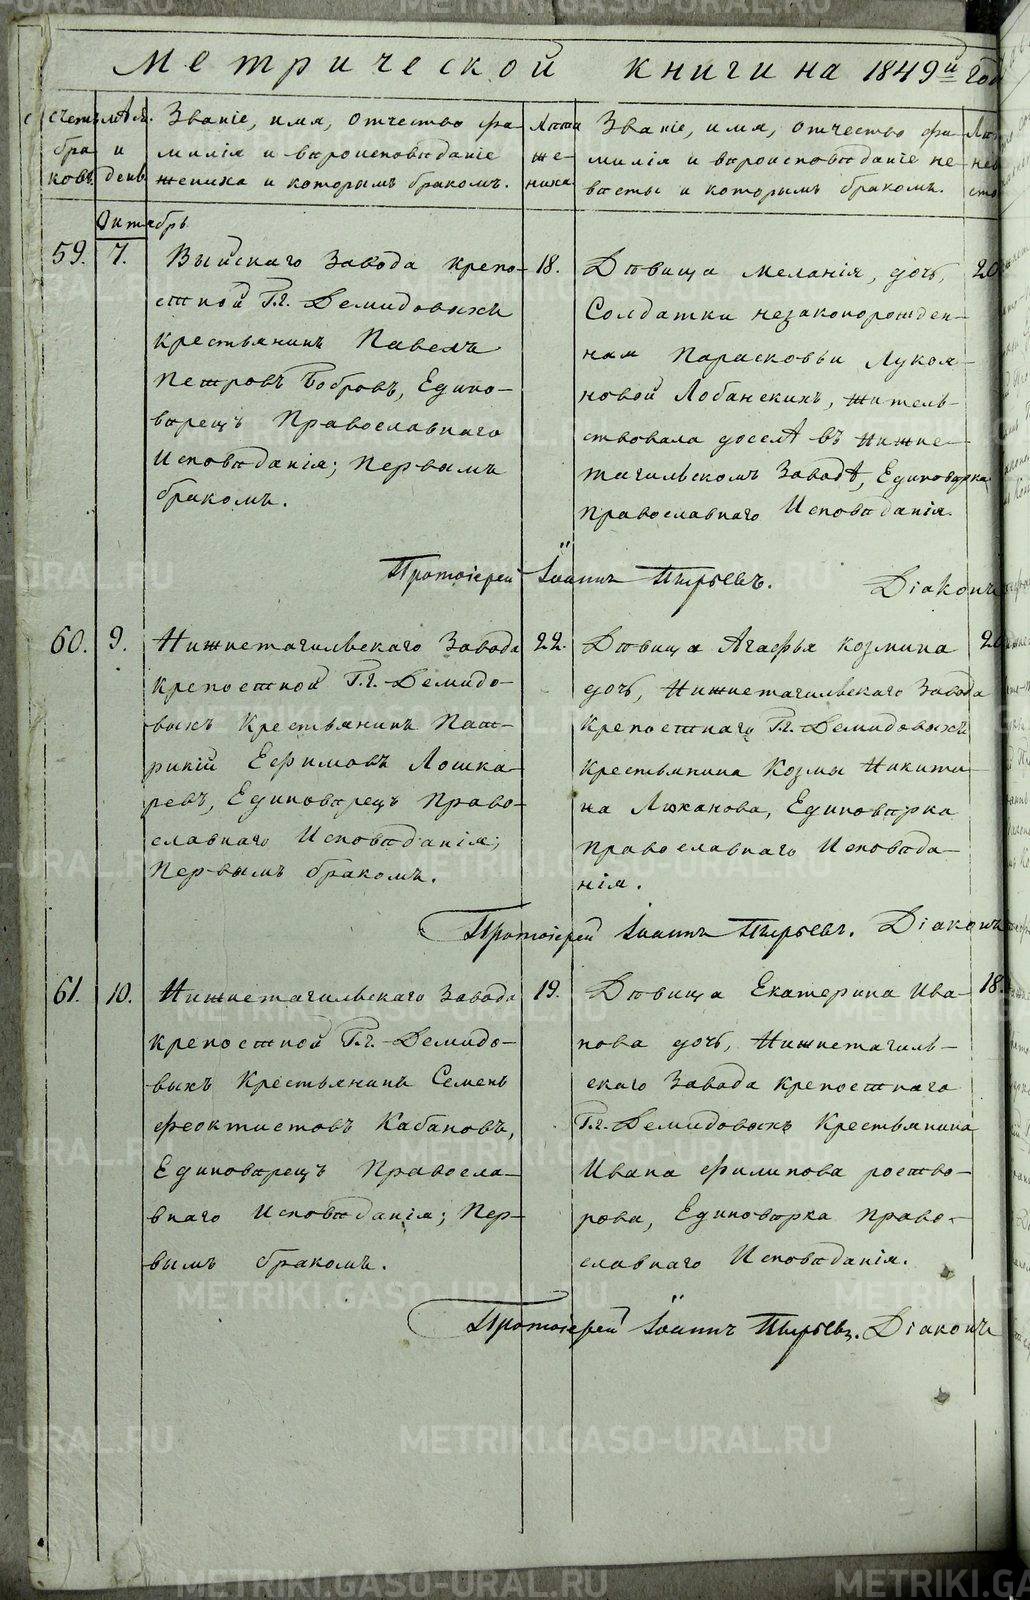 Метрической книги на 1849й год
Счетъ
бра
ковъ.
М-цъ
и
день
Званіе, имя, отчество фа-
милія и вѣроисповѣданіе
жениха и которымъ бракомъ.
Лѣта
же-
ниха
Званіе, имя, отчество фа-
милія и вѣроисповѣданіе не-
вѣсты и которымъ бракомъ.
Лѣт
нев
сты
Октябрь
59. 7.
Выйскаго Завода крепо-
стной Г.г. Демидовыхъ
крестьянинъ Павелъ
Петровъ Бобровъ, Едино-
вѣрецъ Православнаго
Исповѣданія; первымъ
бракомъ.
18.
Дѣвица Меланія, дочь,
Солдатки незаконорожден-
ная Парасковьи Лукоя-
новой Лобанскихъ, житель-
ствовала доселѣ въ Нижне-
тагильскомъ Заводѣ, Единовѣрка
православнаго Исповѣданія.
20
Протоіерей Іоаннъ Пырьевъ. Діаконъ
60. 9.
Нижнетагильскаго Завода
крепостной Г.г. Демидо-
выхъ Крестьянинъ Пат-
рикій Ефимовъ Лошка-
ревъ, Единовѣрецъ Право-
славнаго Исповѣданія;
Первымъ бракомъ.
22.
Дѣвица Агафья Козмина
дочь, Нижнетагильскаго Завода
крепостнаго Г.г. Демидовыхъ
Крестьянина Козмы Никити-
на Люханова, Единовѣрка
православнаго Исповѣда-
нія.
20
Протоіерей Іоаннъ Пырьевъ. Діаконъ
61. 10.
Нижнетагильскаго Завода
крепостной Г.г. Демидо-
выхъ Крестьянинъ Семенъ
Феоктистовъ Кабановъ,
Единовѣрецъ Правосла-
внаго Исповѣданія; Пер-
вымъ бракомъ.
19.
Дѣвица Екатерина Ива-
нова дочь, Нижнетагиль-
скаго Завода крепостнаго
Г.г. Демидовыхъ Крестьянина
Ивана Филипова Роство-
рова, Единовѣрка Право-
славнаго Исповѣданія.
18.
Протоіерей Іоаннъ Пырьевъ. Діаконъ
METRIKI.GASO-URAL.RU